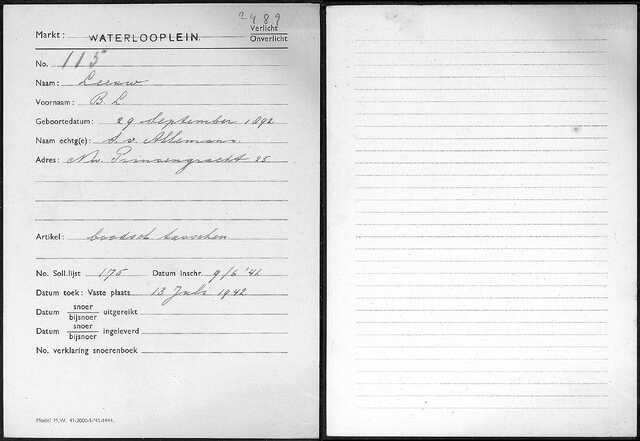 2489
Markt: WATERLOOPLEIN.
Verlicht
Onverlicht
No. 115
Naam: Leeuw
Voornaam: B. L
Geboortedatum: 29 September 1892
Naam echtg(e): S. v. Allemans.
Adres: Nw. Prinsengracht 25.
Artikel: boodsch tasschen
No. Soll.lijst 175 Datum Inschr. 9/6 '41
Datum toek: Vaste plaats 13 Juli 1942
Datum snoer bijsnoer uitgereikt
Datum snoer bijsnoer ingeleverd
No. verklaring snoerenboek
Model M.W. 41-3000-5-'41-1444.